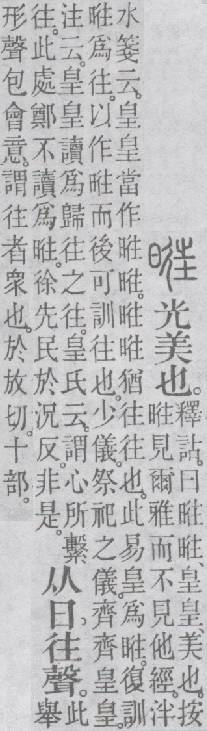 暀光美也。
釋詁。曰暀暀、皇皇、美也。按
暀見爾雅而不見他經。泮
水箋云。皇皇當作暀暀。暀暀猶往往也。此易皇爲暀。復訓
暀爲往。以作暀而後可訓往也。少儀。祭祀之儀。齊齊皇皇。
注云。皇皇讀爲歸往之往。皇氏云。謂心所繫
往。此處鄭不讀爲暀。徐先民於況反。非是。
从日。往聲。
此
舉
形聲包會意。謂往者衆也。於放切。十部。